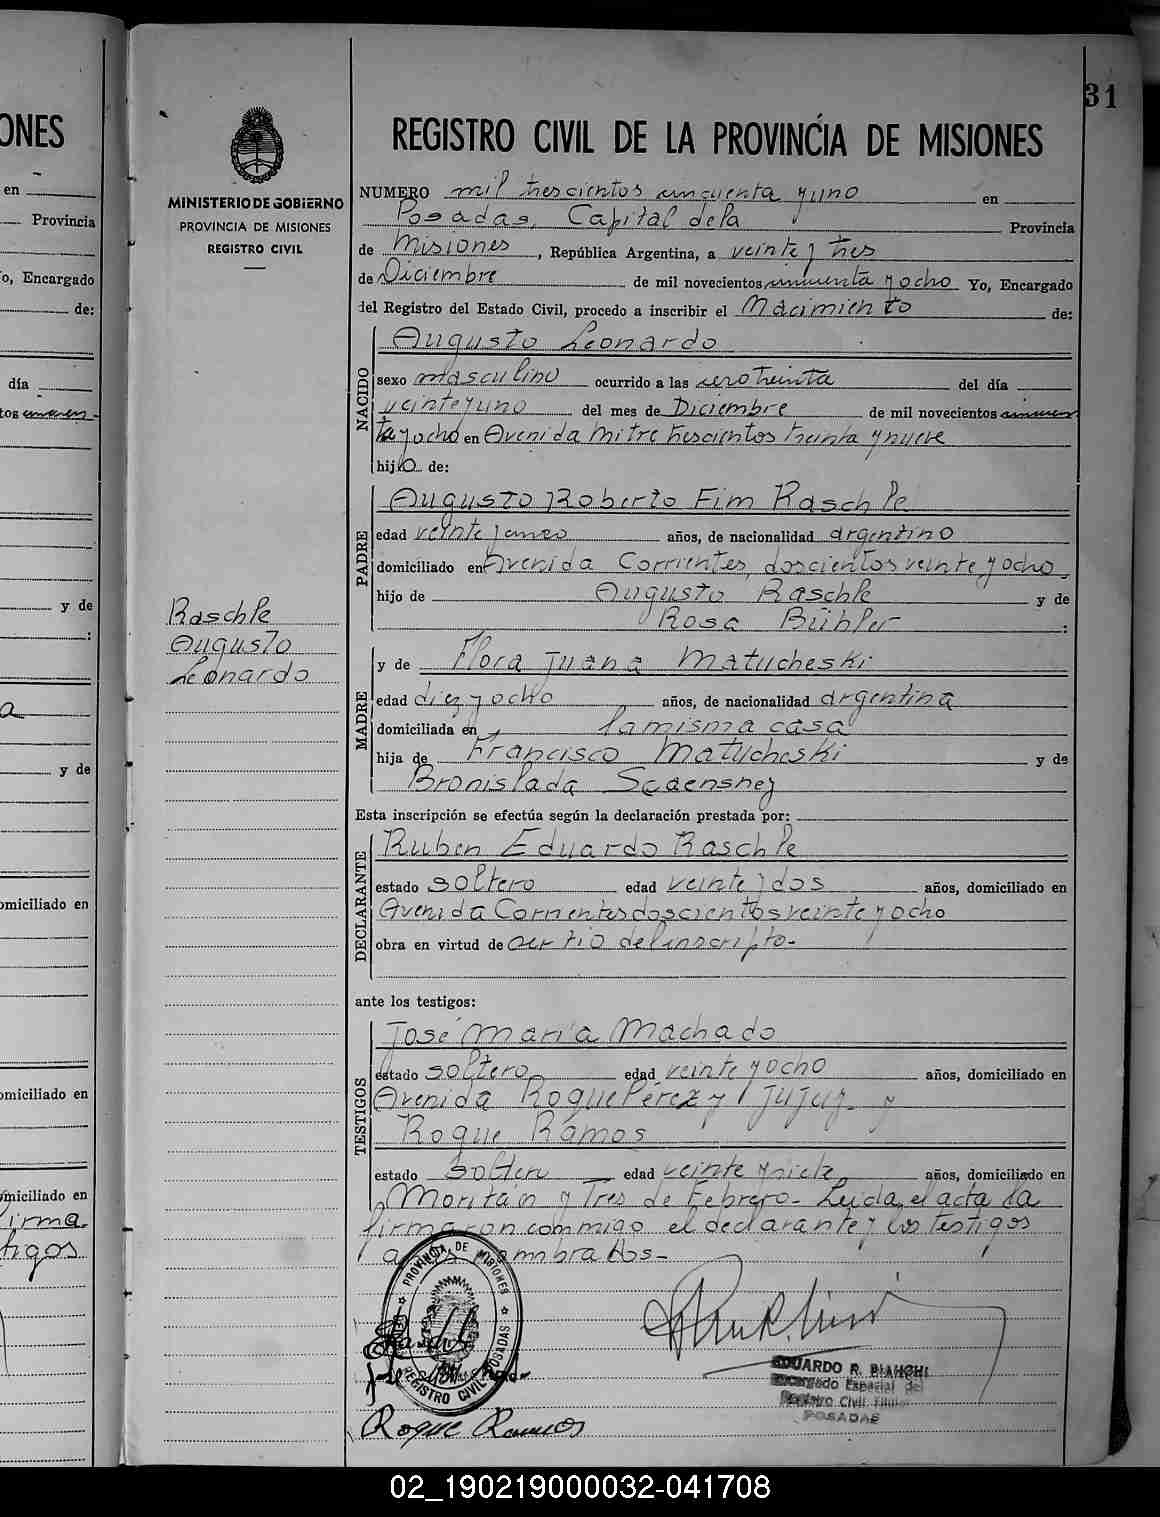 31
ONES
REGISTRO CIVIL DE LA PROVINCIA DE MISIONES
MINISTERIO DE GOBIERNO
PROVINCIA DE MISIONES
REGISTRO CIVIL
en
Provincia
o, Encargado
de:
día
tos
y de
:
a
y de
omiciliado en
omiciliado en
omiciliado en
firma.
tigos
Raschle
Augusto
Leonardo
NUMERO mil trescientos cincuenta y uno en
Posadas, Capital de la Provincia
de Misiones, República Argentina, a veinte y tres
de Diciembre de mil novecientos cincuenta y ocho Yo, Encargado
del Registro del Estado Civil, procedo a inscribir el Nacimiento de:
NACIDO
Augusto Leonardo
sexo masculino ocurrido a las cero treinta del día
veinte y uno del mes de Diciembre de mil novecientos cincuen
ta y ocho en Avenida Mitre trescientos treinta y nueve
hijo de:
PADRE
Augusto Roberto Fim Raschle
edad veinte y cinco años, de nacionalidad argentino
domiciliado en Avenida Corrientes, doscientos veinte y ocho
hijo de Augusto Raschle y de
Rosa Bühler :
MADRE
y de Flora Juana Matucheski
edad diez y ocho años, de nacionalidad argentina
domiciliada en la misma casa
hija de Francisco Matucheski y de
Bronislada
Esta inscripción se efectúa según la declaración prestada por:
DECLARANTE
Ruben Eduardo Raschle
estado soltero edad veinte y dos años, domiciliado en
Avenida Corrientes doscientos veinte y ocho
obra en virtud de ser tio del inscripto-
ante los testigos:
TESTIGOS
José María Machado
estado soltero edad veinte y ocho años, domiciliado en
Avenida Roque Pérez y Jujuy- y
Roque Ramos
estado soltero edad veinte y siete años, domiciliado en
Moritán y Tres de Febrero- Leida el acta la
firmaron conmigo el declarante y los testigos
nombrados-
PROVINCIA DE MISIONES
REGISTRO CIVIL - POSADAS
EDUARDO R. BIANCHI
Encargado Especial del
Registro Civil Titular
POSADAS
Roque Ramos
02_190219000032-041708